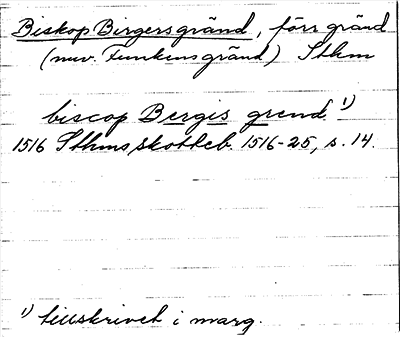 Biskop Birgersgränd, förr gränd
(nuv. Funkens gränd) Sthm
biscop Bergis grend 1)
1516 Sthms skotteb. 1516-25, s. 14.
1) tillskrivet i marg.